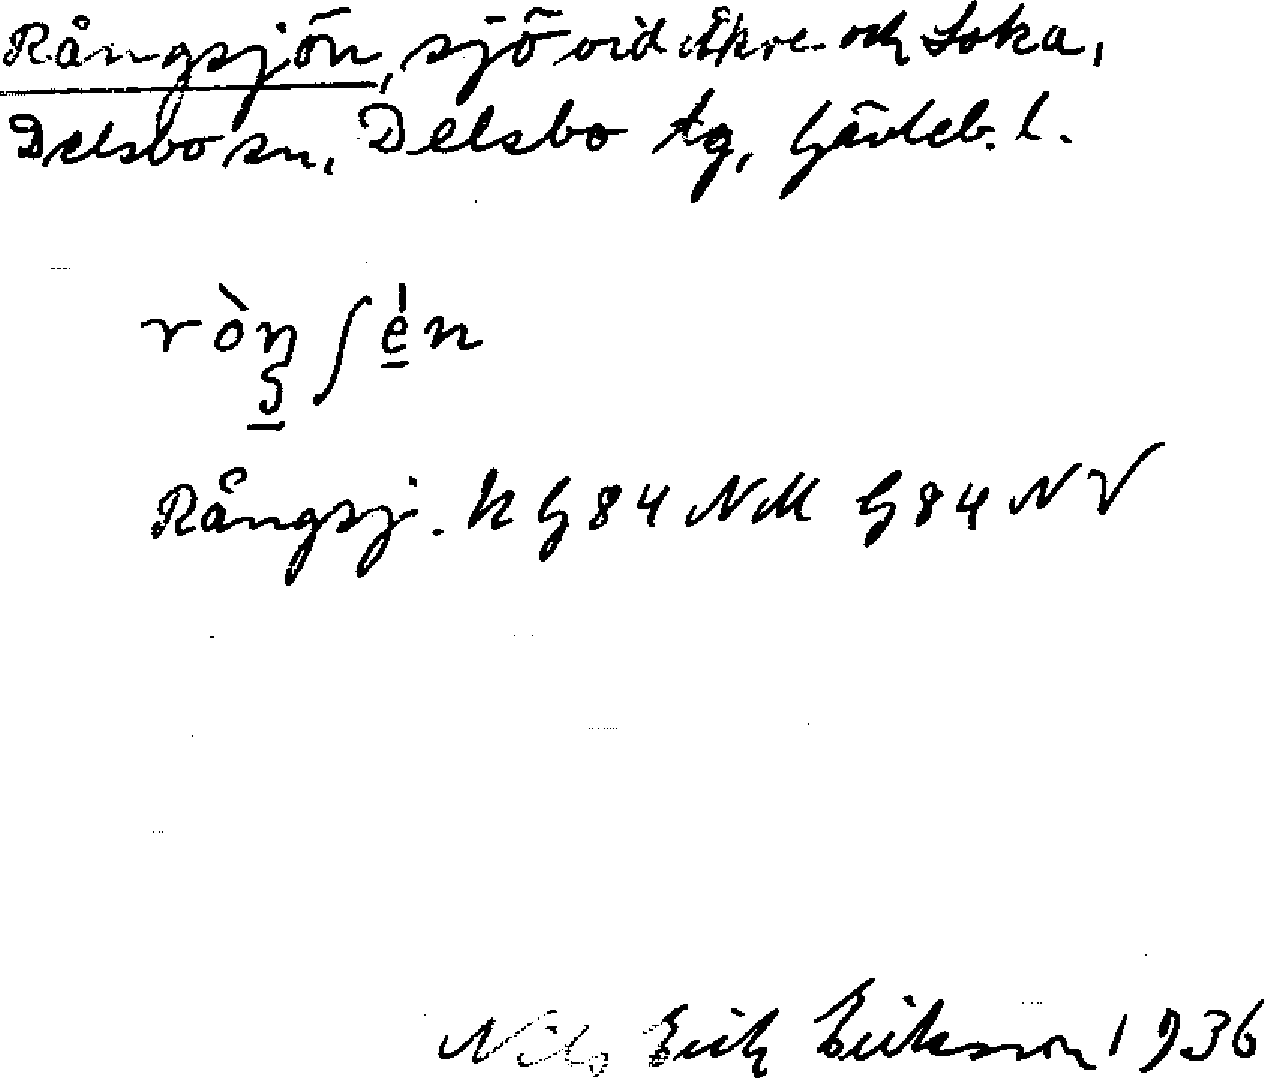 Rångsjön, sjö vid Åkre och Loka,
Delsbo sn, Delsbo tg, Gävleb. l.
ròŋʃe̱n
Rångsj. K G 84 NM G 84 NV
Nils Erik Eriksson 1936